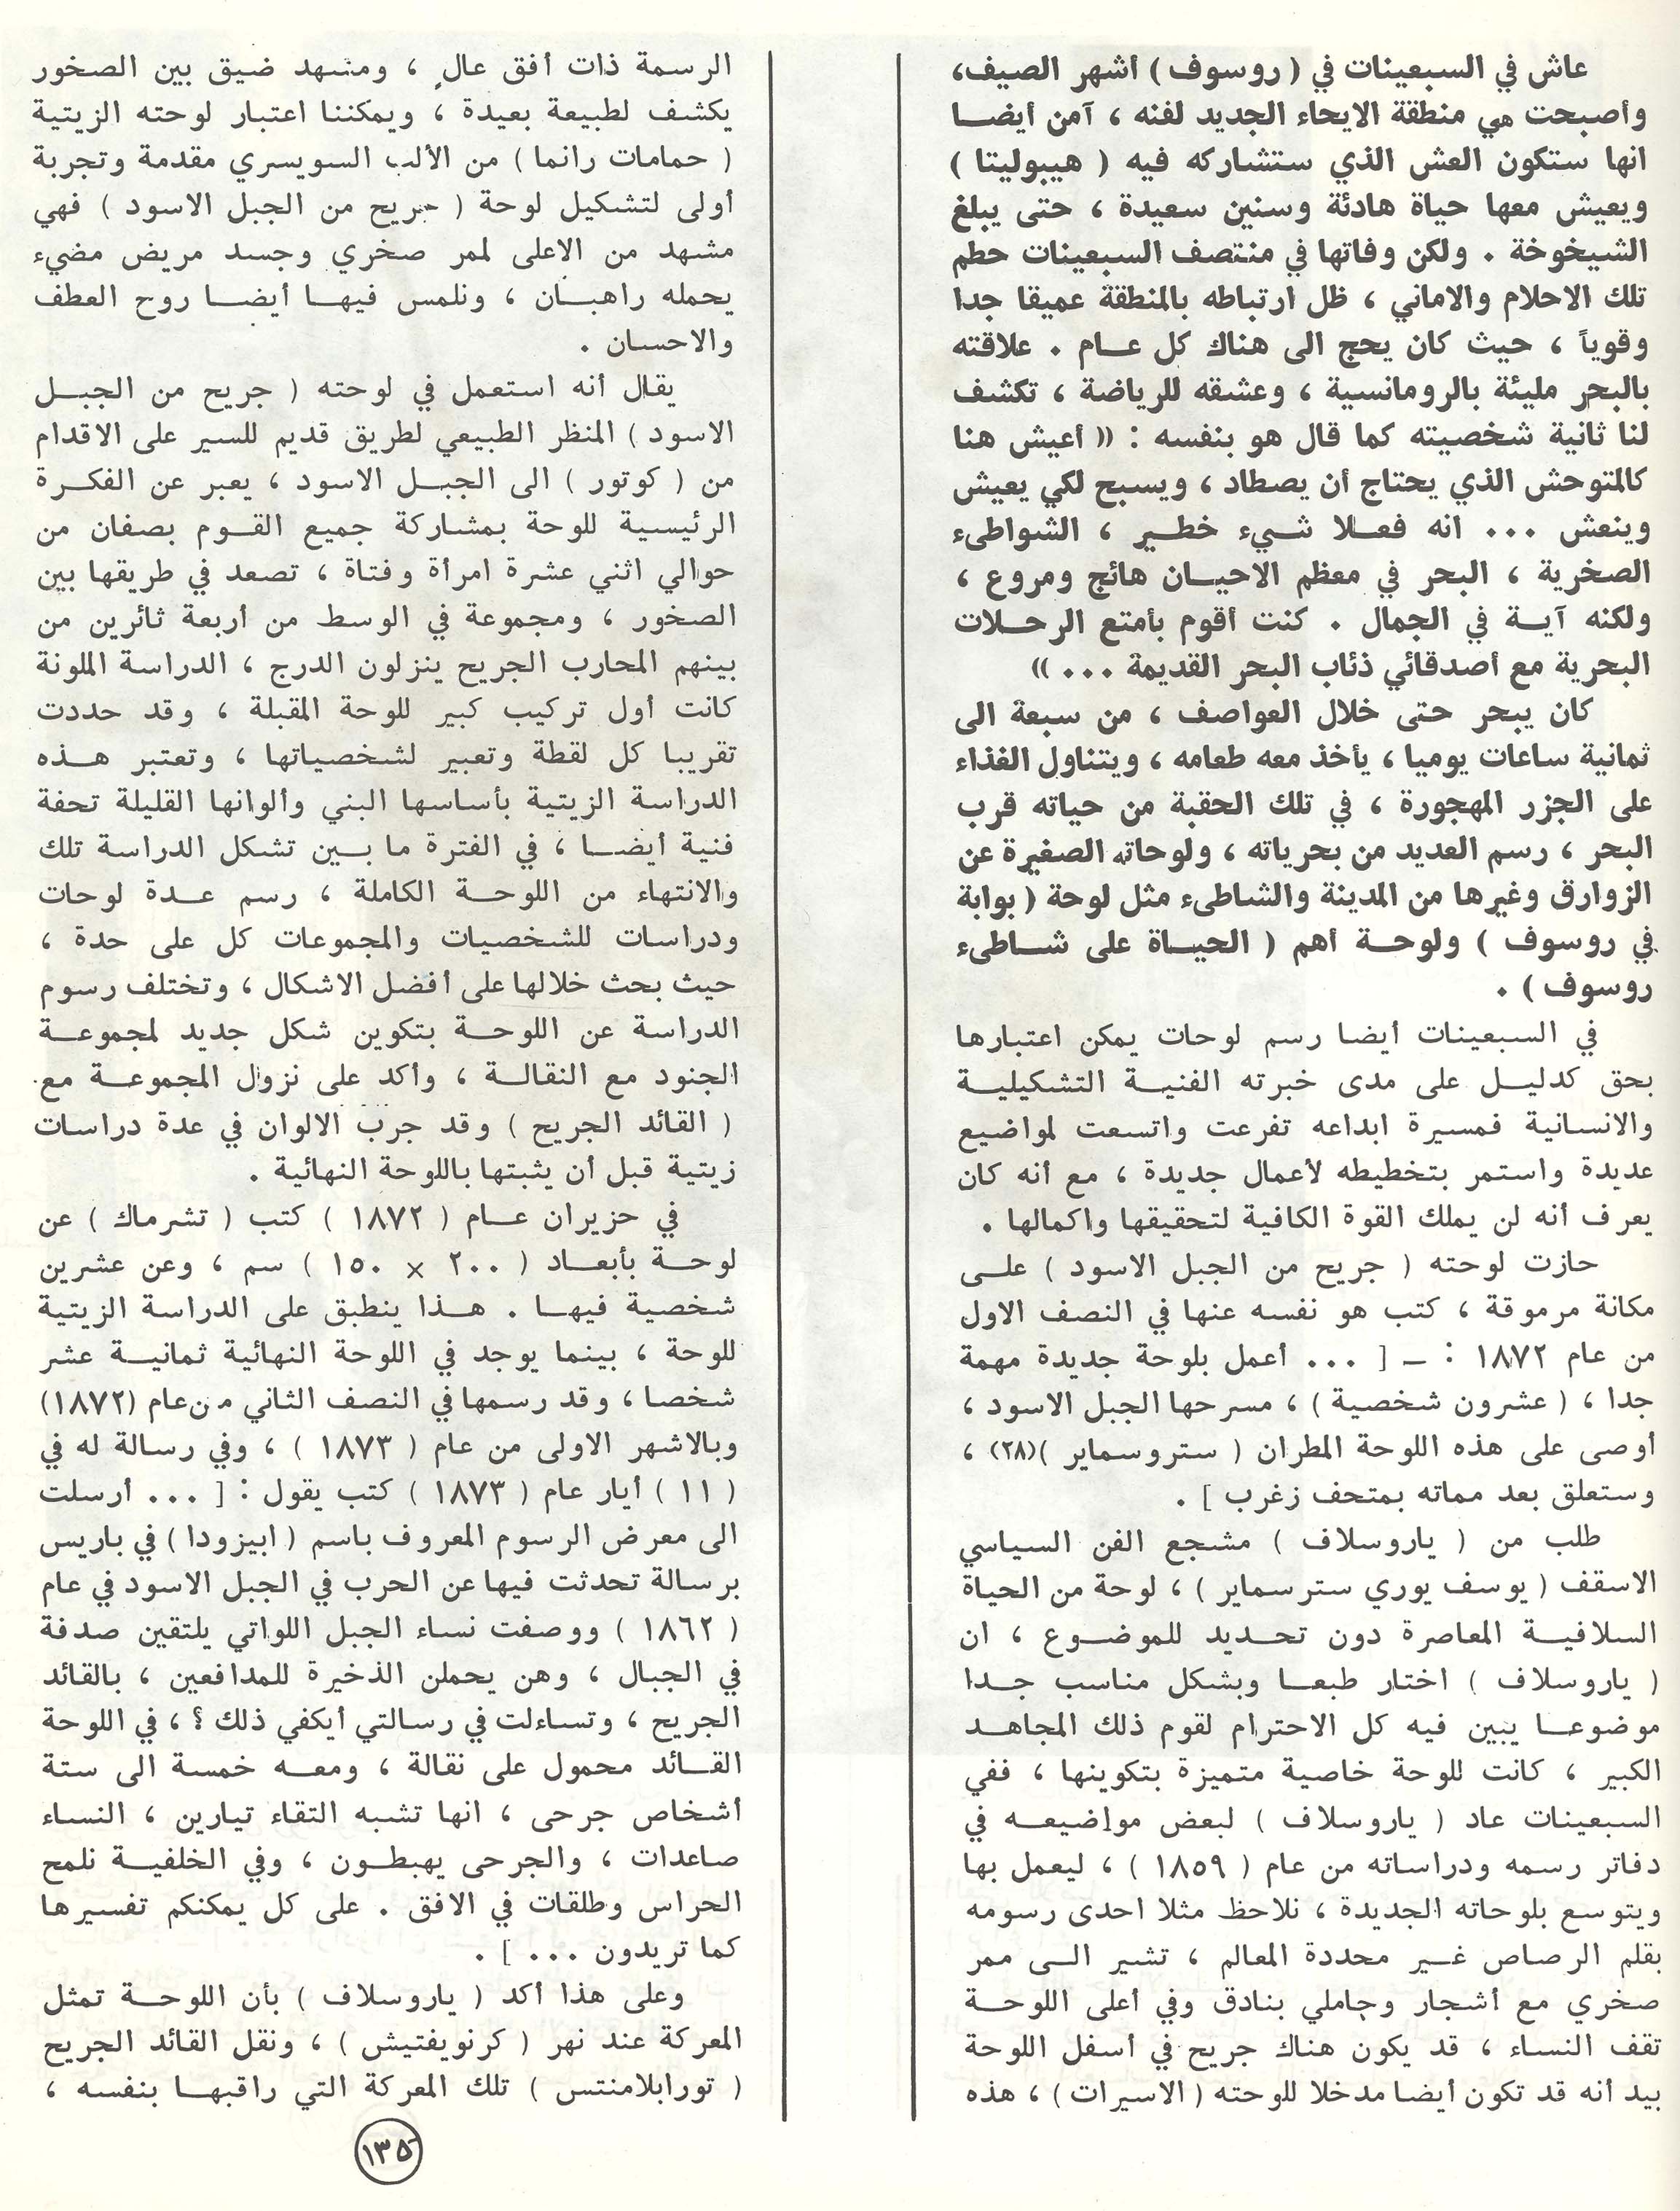 عاش في السبعينات في ( روسوف ) أشهر الصيف،
وأصبحت هي منطقة الايحاء الجديد لفنه ، آمن أيضا
انها ستكون العش الذي ستشاركه فيه ( هيبوليتا )
ويعيش معها حياة هادئة وسنين سعيدة ، حتى يبلغ
الشيخوخة . ولكن وفاتها في منتصف السبعينات حطم
تلك الاحلام والاماني ، ظل ارتباطه بالمنطقة عميقا جدا
وقوياً ، حيث كان يحج الى هناك كل عام . علاقته
بالبحر مليئة بالرومانسية ، وعشقه للرياضة ، تكشف
لنا ثانية شخصيته كما قال هو بنفسه : (( أعيش هنا
كالمتوحش الذي يحتاج أن يصطاد ، ويسبح لكي يعيش
وينعش ... انه فعلا شيء خطير ، الشواطىء
الصخرية ، البحر في معظم الاحيان هائج ومروع ،
ولكنه آية في الجمال . كنت أقوم بأمتع الرحلات
البحرية مع أصدقائي ذئاب البحر القديمة ... ))
كان يبحر حتى خلال العواصف ، من سبعة الى
ثمانية ساعات يوميا ، يأخذ معه طعامه ، ويتناول الغذاء
على الجزر المهجورة ، في تلك الحقبة من حياته قرب
البحر ، رسم العديد من بحرياته ، ولوحاته الصغيرة عن
الزوارق وغيرها من المدينة والشاطىء مثل لوحة ( بوابة
في روسوف ) ولوحة أهم ( الحياة على شاطىء
روسوف ) .
في السبعينات أيضا رسم لوحات يمكن اعتبارها
بحق كدليل على مدى خبرته الفنية التشكيلية
والانسانية فمسيرة ابداعه تفرعت واتسعت لمواضيع
عديدة واستمر بتخطيطه لأعمال جديدة ، مع أنه كان
يعرف أنه لن يملك القوة الكافية لتحقيقها واكمالها .
حازت لوحته ( جريح من الجبل الاسود ) على
مكانة مرموقة ، كتب هو نفسه عنها في النصف الاول
من عام ١٨٧٢ : ـ [ ... أعمل بلوحة جديدة مهمة
جدا ، ( عشرون شخصية ) ، مسرحها الجبل الاسود ،
أوصى على هذه اللوحة المطران ( ستروسماير )(٢٨) ،
وستعلق بعد مماته بمتحف زغرب ] .
طلب من ( ياروسلاف ) مشجع الفن السياسي
الاسقف ( يوسف يوري سترسماير ) ، لوحة من الحياة
السلافية المعاصرة دون تحديد للموضوع ، ان
( ياروسلاف ) اختار طبعا وبشكل مناسب جدا
موضوعا يبين فيه كل الاحترام لقوم ذلك المجاهد
الكبير ، كانت للوحة خاصية متميزة بتكوينها ، ففي
السبعينات عاد ( ياروسلاف ) لبعض مواضيعه في
دفاتر رسمه ودراساته من عام ( ١٨٥٩ ) ، ليعمل بها
ويتوسع بلوحاته الجديدة ، نلاحظ مثلا احدى رسومه
بقلم الرصاص غير محددة المعالم ، تشير الى ممر
صخري مع أشجار وحاملي بنادق وفي أعلى اللوحة
تقف النساء ، قد يكون هناك جريح في أسفل اللوحة
بيد أنه قد تكون أيضا مدخلا للوحته ( الاسيرات ) ، هذه
الرسمة ذات أفق عالٍ ، ومشهد ضيق بين الصخور
يكشف لطبيعة بعيدة ، ويمكننا اعتبار لوحته الزيتية
( حمامات رانما ) من الألب السويسري مقدمة وتجربة
أولى لتشكيل لوحة ( جريح من الجبل الاسود ) فهي
مشهد من الاعلى لممر صخري وجسد مريض مضيء
يحمله راهبان ، ونلمس فيها أيضا روح العطف
والاحسان .
يقال أنه استعمل في لوحته ( جريح من الجبل
الاسود ) المنظر الطبيعي لطريق قديم للسير على الاقدام
من ( كوتور ) الى الجبل الاسود ، يعبر عن الفكرة
الرئيسية للوحة بمشاركة جميع القوم بصفان من
حوالي اثني عشرة امرأة وفتاة ، تصعد في طريقها بين
الصخور ، ومجموعة في الوسط من أربعة ثائرين من
بينهم المحارب الجريح ينزلون الدرج ، الدراسة الملونة
كانت أول تركيب كبير للوحة المقبلة ، وقد حددت
تقريبا كل لقطة وتعبير لشخصياتها ، وتعتبر هذه
الدراسة الزيتية بأساسها البني وألوانها القليلة تحفة
فنية أيضا ، في الفترة ما بين تشكل الدراسة تلك
والانتهاء من اللوحة الكاملة ، رسم عدة لوحات
ودراسات للشخصيات والمجموعات كل على حدة ،
حيث بحث خلالها على أفضل الاشكال ، وتختلف رسوم
الدراسة عن اللوحة بتكوين شكل جديد لمجموعة
الجنود مع النقالة ، وأكد على نزول المجموعة مع
( القائد الجريح ) وقد جرب الالوان في عدة دراسات
زيتية قبل أن يثبتها باللوحة النهائية .
في حزيران عام ( ١٨٧٢ ) كتب ( تشرماك ) عن
لوحة بأبعاد ( ٢٠٠ × ١٥٠ ) سم ، وعن عشرين
شخصية فيها . هذا ينطبق على الدراسة الزيتية
للوحة ، بينما يوجد في اللوحة النهائية ثمانية عشر
شخصا ، وقد رسمها في النصف الثاني من عام (١٨٧٢)
وبالاشهر الاولى من عام ( ١٨٧٣ ) ، وفي رسالة له في
( ١١ ) أيار عام ( ١٨٧٣ ) كتب يقول : [ ... أرسلت
الى معرض الرسوم المعروف باسم ( ابيزودا ) في باريس
برسالة تحدثت فيها عن الحرب في الجبل الاسود في عام
( ١٨٦٢ ) ووصفت نساء الجبل اللواتي يلتقين صدفة
في الجبال ، وهن يحملن الذخيرة للمدافعين ، بالقائد
الجريح ، وتساءلت في رسالتي أيكفي ذلك ؟ ، في اللوحة
القائد محمول على نقالة ، ومعه خمسة الى ستة
أشخاص جرحى ، انها تشبه التقاء تيارين ، النساء
صاعدات ، والجرحى يهبطون ، وفي الخلفية نلمح
الحراس وطلقات في الافق . على كل يمكنكم تفسيرها
كما تريدون ... ] .
وعلى هذا أكد ( ياروسلاف ) بأن اللوحة تمثل
المعركة عند نهر ( كرنويفتيش ) ، ونقل القائد الجريح
( تورابلامنتس ) تلك المعركة التي راقبها بنفسه ،
١٣٥